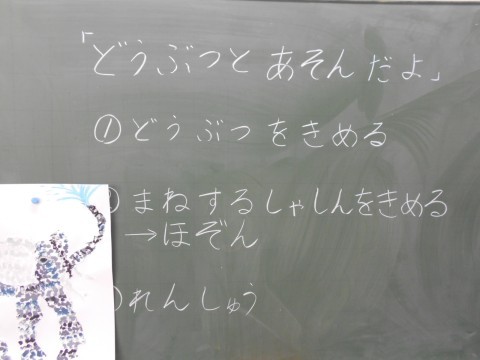 「どうぶつと あそんだよ」
①どうぶつをきめる
まねするしゃしんをきめる
→ほぞん
れんしゅう